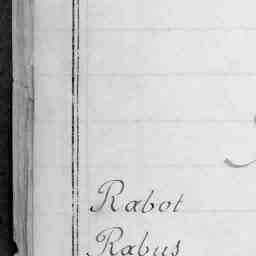 Rabot
Rabus